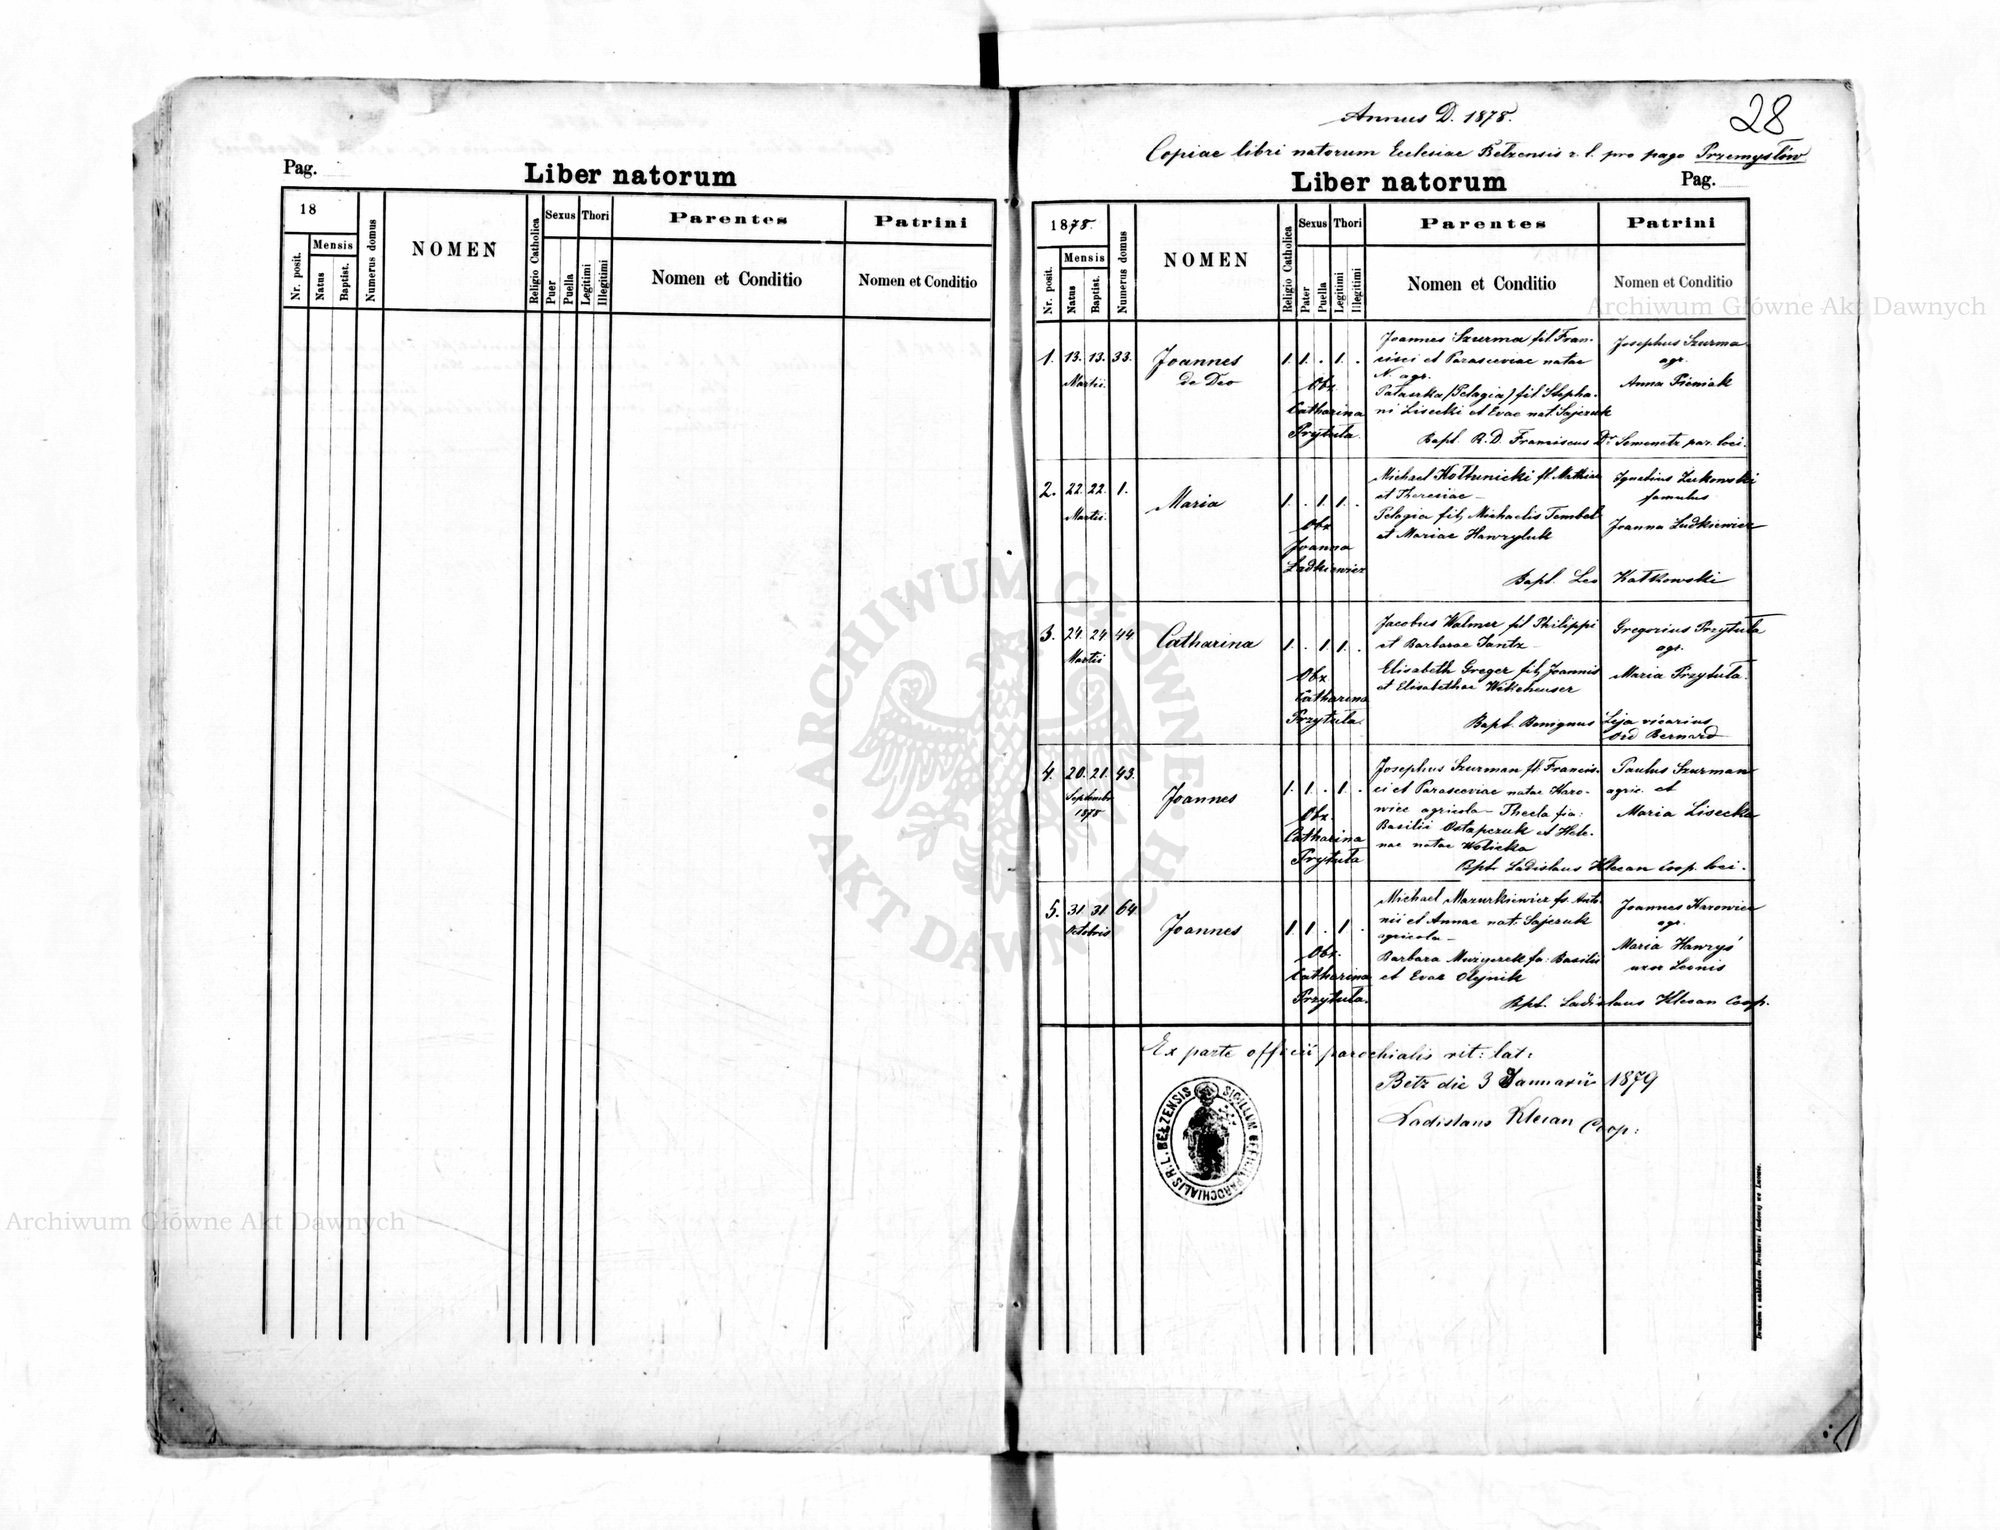 28
Annus D. 1878.
Copiae libri natorum Ecclesiae Bełzensis r. l. pro pago Przemysłów
Pag.
Liber natorum
18
Mensis
Nr. posit.
Natus
Baptist.
Numerus domus
NOMEN
Religio Catholica
Sexus
Puer
Puella
Thori
Legitimi
Illegitimi
Parentes
Nomen et Conditio
Patrini
Nomen et Conditio
Liber natorum
Pag.
1878.
Mensis
Nr. posit.
Natus
Baptist.
Numerus domus
NOMEN
Religio Catholica
Sexus
Pater
Puella
Thori
Legitimi
Illegitimi
Parentes
Nomen et Conditio
Patrini
Nomen et Conditio
1. 13. 13. 33.
Martii
Joannes
de Deo
1. 1. . 1. .
Obx
Catharina
Prytuła.
Joannes Szurma fil. Fran-
cisci et Parasceviae natae
N. agr.
Pałaszka (Pelagia) fil. Stepha-
ni Lisecki et Evae nat. Sajczuk
Josephus Szurma
agr.
Anna Pieniak
Bapt. R. D. Franciscus Dr Semenetz par. loci.
2. 22. 22. 1.
Martii
Maria
1. . 1. 1. .
Obx
Joanna
Ludkiewicz
Michael Kołtunicki fil. Mathiae
et Theresiae –
Pelagia fil. Michaelis Tembel
et Mariae Hawryluk
Ignatius Żukowski
famulus
Joanna Ludkiewicz
Bapt. Leo Kałkowski
3. 24. 24 44
Martii
Catharina
1. . 1. 1. .
Obx
Catharina
Przytuła.
Jacobus Walmer fil Philippi
et Barbarae Jantz
Elisabeth Greger fil. Joannis
et Elisabethae
Gregorius Przytuła
agr.
Maria Przytuła.
Bapt. Benignus Leja vicarius
Ord Bernard
4. 20. 21. 43.
Septembr
1878
Joannes
1. 1. . 1. .
Obx.
Catharina
Prytuła
Josephus Szurman fil. Francis-
ci et Parasceviae natae Karo-
wiec agricola – Thecla fia:
Basilii Ostapczuk et Hele-
nae natae Wolicka
Paulus Szurman
agric. et
Maria Lisecka
Bpt. Ladislaus Klecan Coop. loci.
5. 31 31 64
Octobris
Joannes
1. 1. . 1. .
Obx.
Catharina
Przytuła.
Michael Mazurkiewicz fs. Anto-
nii et Annae nat. Sajczuk
agricola –
Barbara fa: Basilii
et Evae Olejnik
Joannes Karowiec
agr.
Maria Hawryś
uxor Leonis
Bpt. Ladislaus Klecan Coop.
Ex parte officii parochialis rit: lat:
Bełz die 3 Januarii 1879
Ladislaus Klecan Coop:
SIGILLUM OFFICII PAROCHIALIS R. L. BEŁZENSIS
Drukiem i nakładem Drukarni Ludowej we Lwowie.
Archiwum Główne Akt Dawnych
Archiwum Główne Akt Dawnych
ARCHIWUM GŁÓWNE AKT DAWNYCH